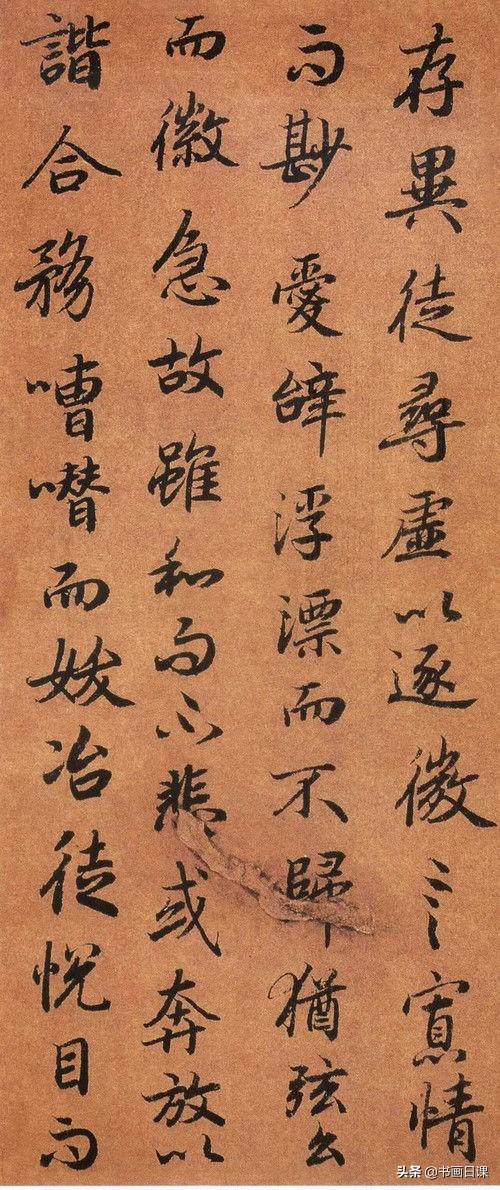 存異徒尋虛以逐微言寡情
而尠愛辝浮漂而不歸猶弦么
而徽急故雖和而不悲或奔放以
諧合務嘈噆而妖冶徒悅目而
头条 @书画日课